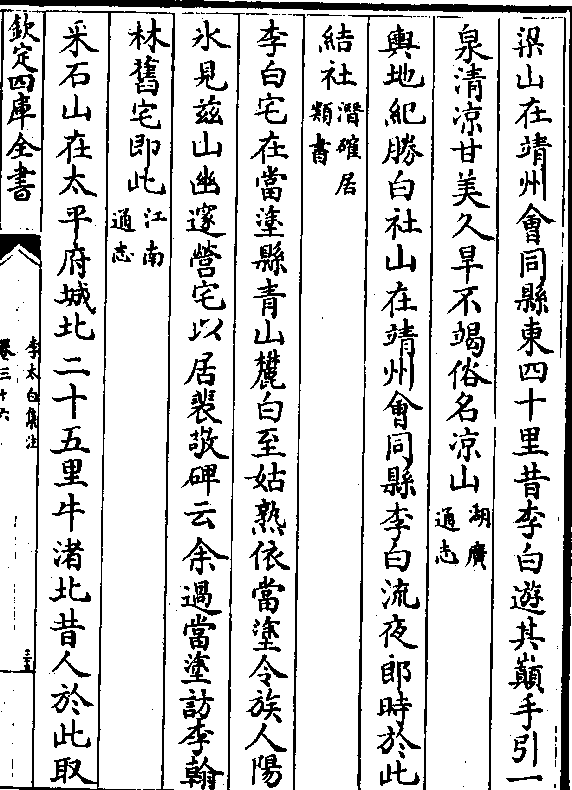 梁山在靖州會同縣東四十里昔李白遊其巔手引一
泉清涼甘美久旱不竭俗名涼山湖廣通志
輿地紀勝白社山在靖州會同縣李白流夜郎時於此
結社潛確居類書
李白宅在當塗縣青山麓白至姑熟依當塗令族人陽
氷見茲山幽邃營宅以居裴敬碑云余過當塗訪李翰
林舊宅即此江南通志
采石山在太平府城北二十五里牛渚北昔人於此取
欽定四庫全書
李太白集注
卷三十六